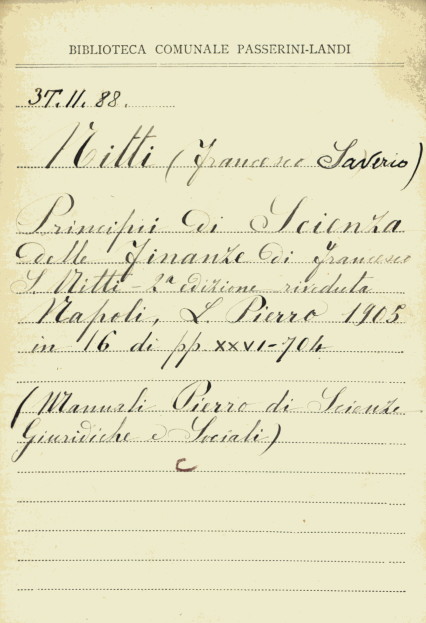 BIBLIOTECA COMUNALE PASSERINI-LANDI
3T.11.88.
Nitti (Francesco Saverio)
Principii di Scienza
delle Finanze di Francesco
S. Nitti - 2ª edizione riveduta
Napoli, L. Pierro 1905
in 16 di pp. XXVI-704
(Manuali Pierro di Scienze
Giuridiche e Sociali)
C